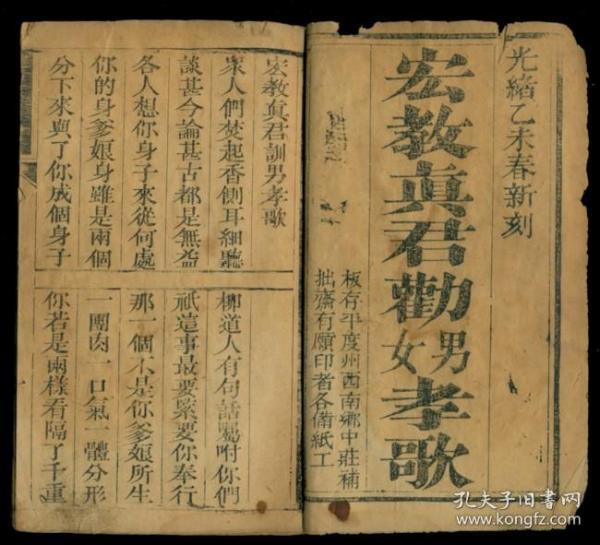 光緒乙未春新刻
宏教眞君勸男女孝歌
板存平度州西南鄉中莊補
拙齋有願印者各備紙工
宏教眞君訓男孝歌
衆人們焚起香側耳細聽
柳道人有句話囑咐你們
談甚今論甚古都是無益
祇這事最要緊要你奉行
各人想你身子來從何處
那一個不是你爹娘所生
你的身爹娘身雖是兩個
一團肉一口氣一體分形
分下來與了你成個身子
你若是兩樣看隔了千重
孔夫子旧书网
www.kongfz.com